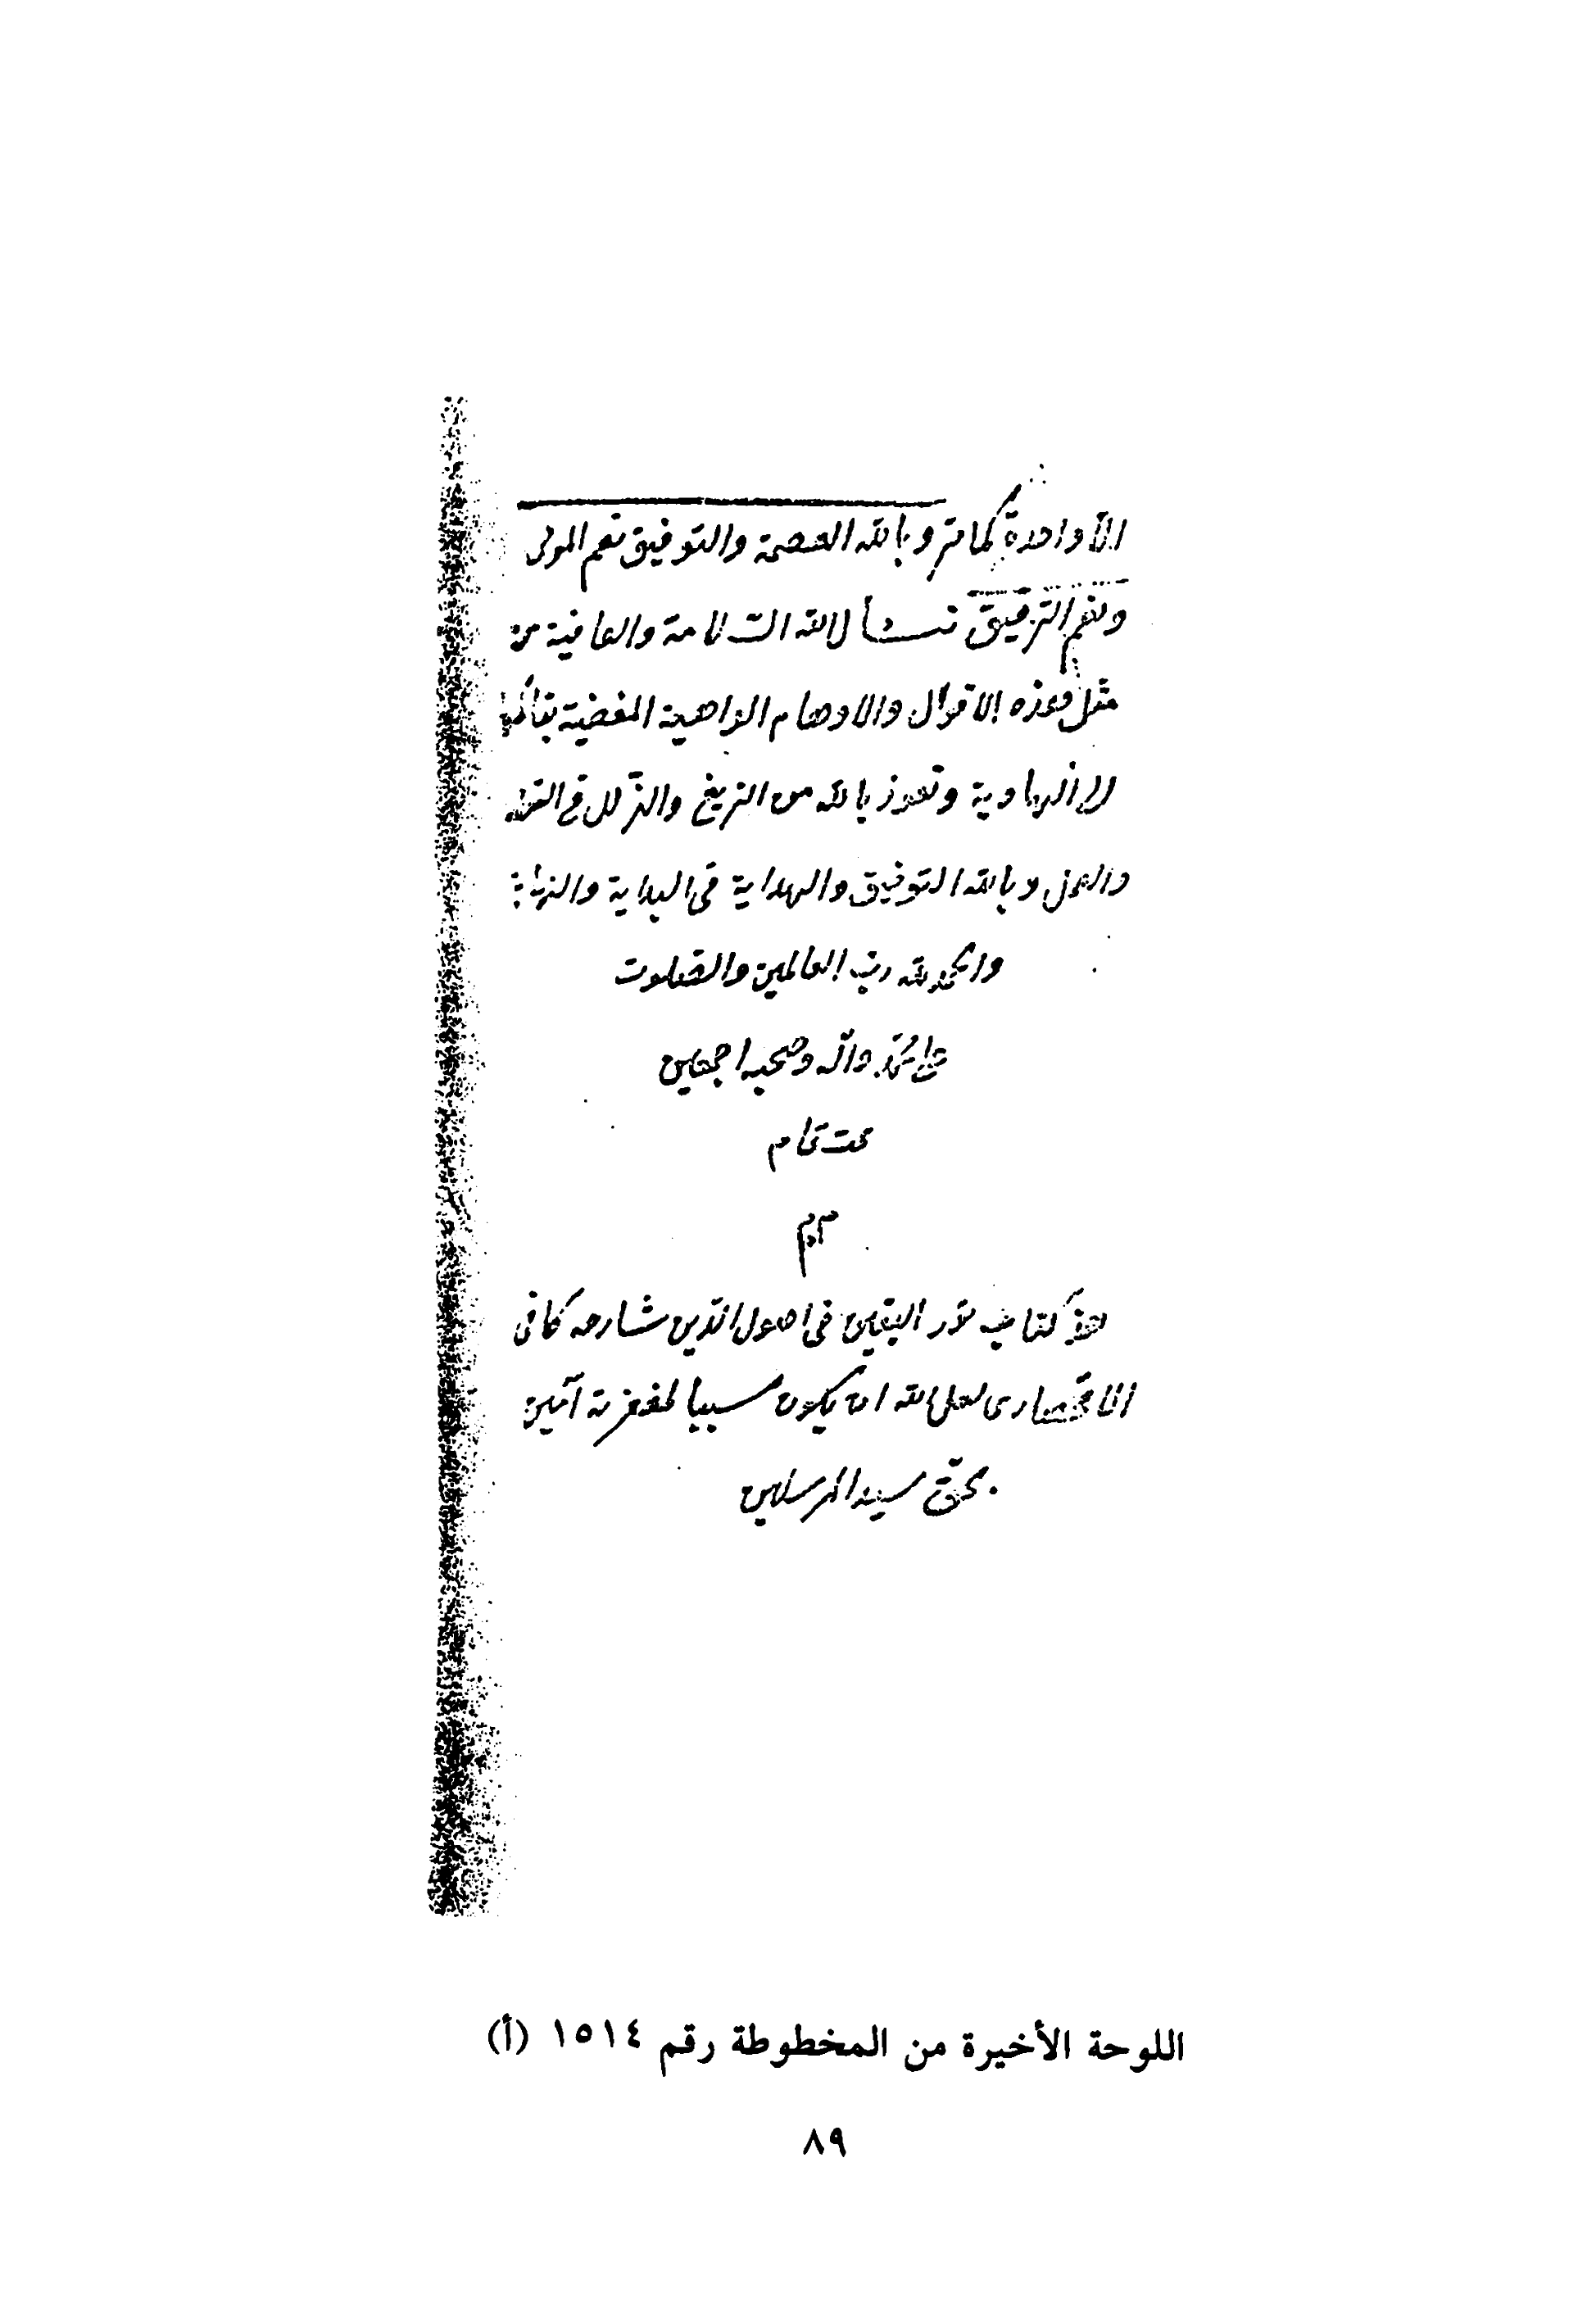 الا واحدة كما مر وبالله العصمة والتوفيق نعم المولى
ونعم الرفيق نسأل الله السلامة والعافية من
مثل هذه الاقوال والاوهام الواهية المفضية بقائلها
الى الهاوية ونعوذ بالله من الزيغ والزلل في القول
والعمل وبالله التوفيق والهداية في البداية والنهاية
والحمد لله رب العالمين والصلوت
على محمد وآله وصحبه اجمعين
تمت تمام
م م
هذ كتاب نور اليقين في اصول الدين شارحه كافى
الاقحصارى لعل الله ان يكون سببا لمغفرته آمين
بحق سيد المرسلين
اللوحة الأخيرة من المخطوطة رقم ١٥١٤ (أ)
٨٩